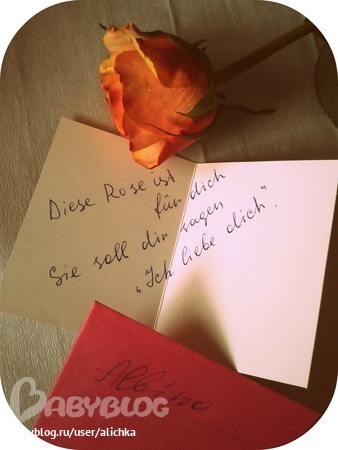 Diese Rose ist
für dich
Sie soll dir sagen
„Ich liebe dich“.
Albina
BABYBLOG
byblog.ru/user/alichka